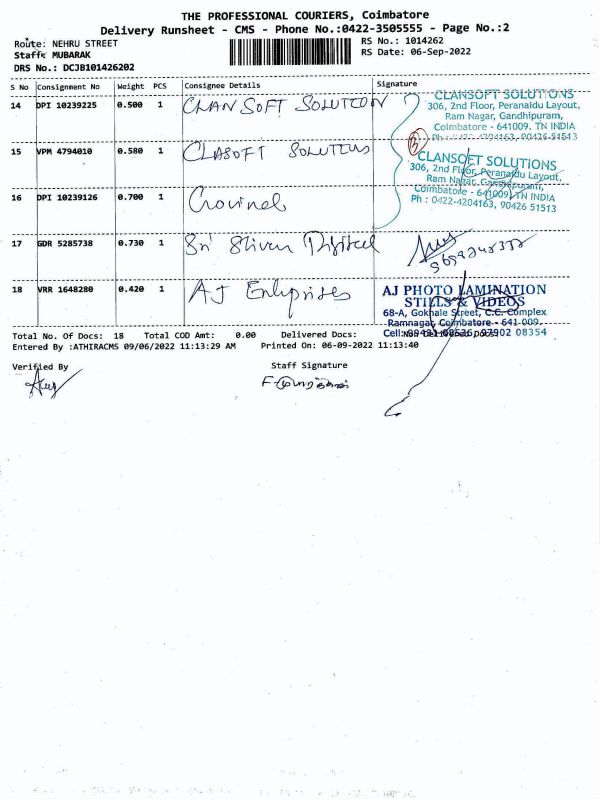 THE PROFESSIONAL COURIERS, Coimbatore
Delivery Runsheet - CMS - Phone No.:0422-3505555 - Page No.:2
Route: NEHRU STREET
RS No.: 1014262
Staff: MUBARAK
RS Date: 06-Sep-2022
DRS No.: DCJB101426202
S No Consignment No Weight PCS Consignee Details Signature
14 DPI 10239225 0.500 1 CLAN SOFT SOLUTION
CLANSOFT SOLUTIONS
306, 2nd Floor, Peranaidu Layout,
Ram Nagar, Gandhipuram,
Coimbatore - 641009. TN INDIA
Ph : 0422-4204163, 90426 51513
3
15 VPM 4794010 0.580 1 CLASOFT SOLUTIUS
CLANSOFT SOLUTIONS
306, 2nd Floor, Peranaidu Layout,
Ram Nagar, Gandhipuram,
Coimbatore - 641009. TN INDIA
Ph : 0422-4204163, 90426 51513
16 DPI 10239126 0.700 1
17 GDR 5285738 0.730 1 Sri
18 VRR 1648280 0.420 1 AJ Enterprises
AJ PHOTO LAMINATION
STILLS & VIDEOS
68-A, Gokhale Street, C.C. Complex
Ramnagar, Coimbatore - 641 009.
Cell: 97902 08354
Total No. Of Docs: 18 Total COD Amt: 0.00 Delivered Docs:
Entered By :ATHIRACMS 09/06/2022 11:13:29 AM Printed On: 06-09-2022 11:13:40
Verified By
Staff Signature